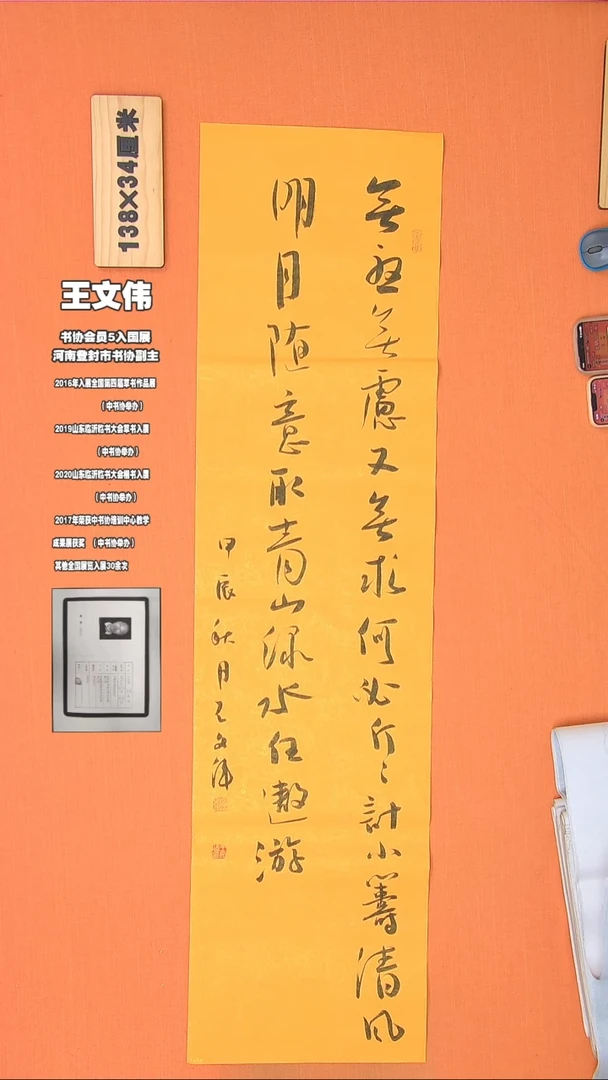 138X34厘米
王文伟
书协会员5入国展
河南登封市书协副主
2016年入展全国第四届草书作品展
（中书协举办）
2019山东临沂临书大会草书入展
（中书协举办）
2020山东临沂临书大会楷书入展
（中书协举办）
2017年荣获中书协培训中心教学
成果展获奖 （中书协举办）
其他全国展览入展30余次
無憂無慮又無求何必斤〻計小籌清风
明月随意取青山绿水任遨游
甲辰秋月王文伟